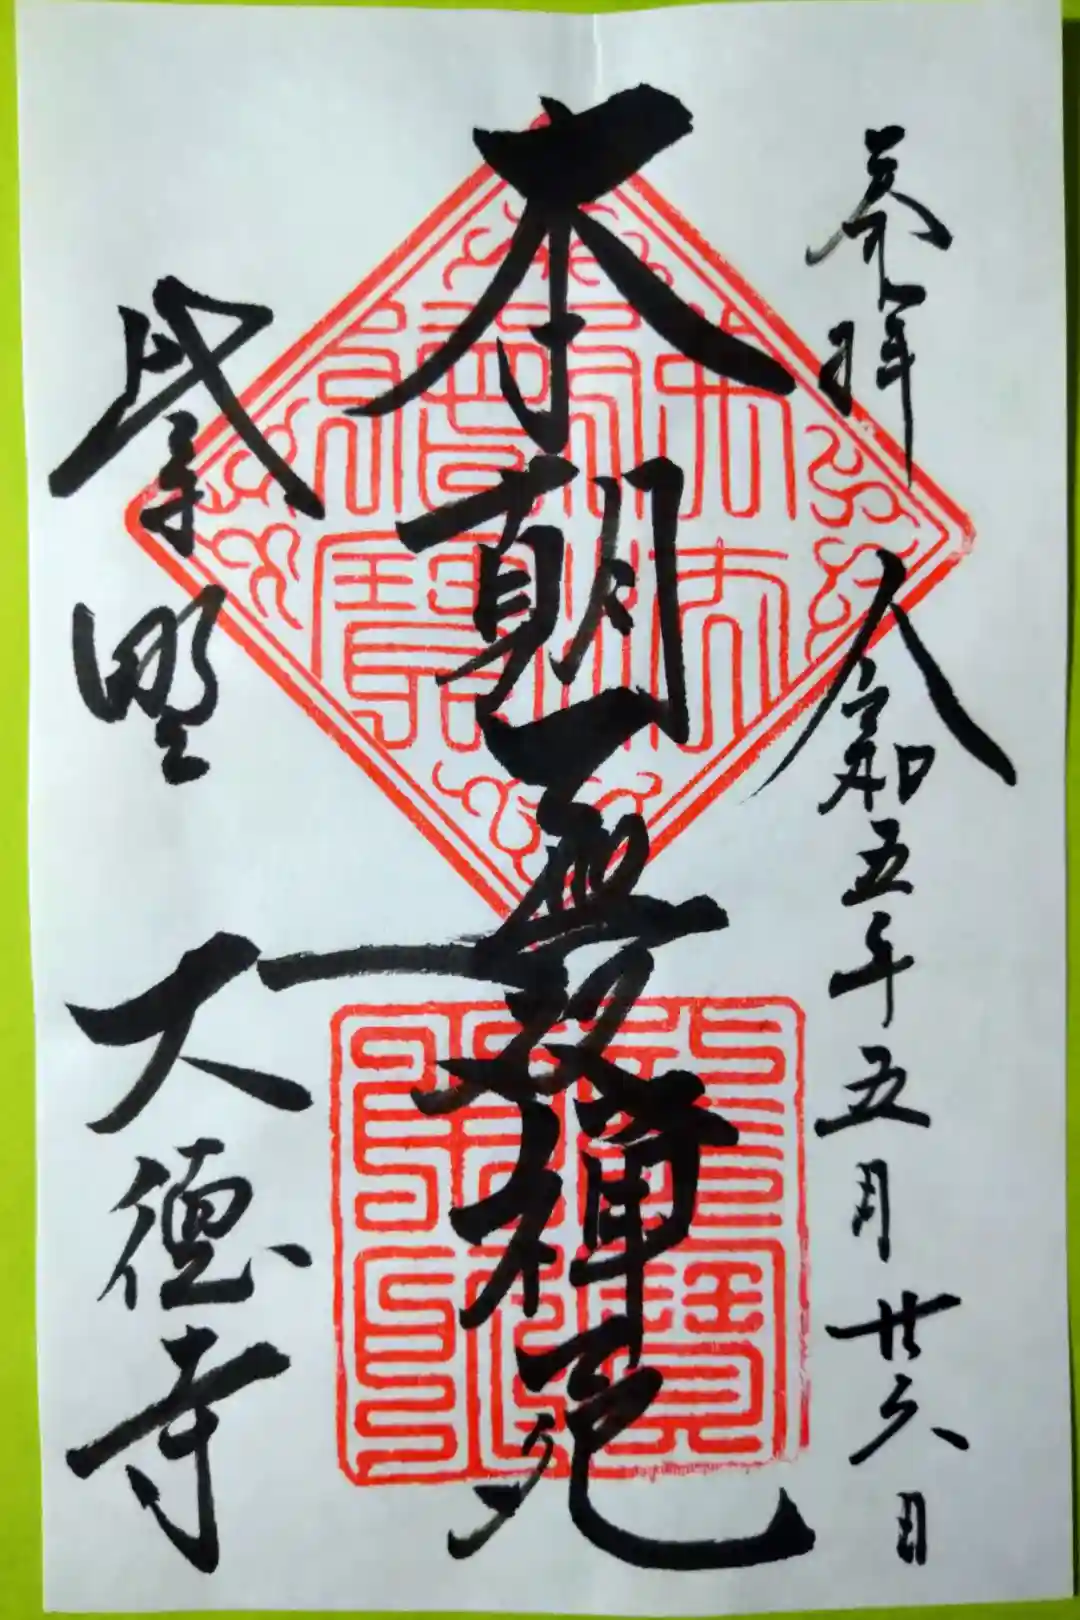 奉拝
令和五年五月廿六日
本朝無双禅苑
紫野 大徳寺